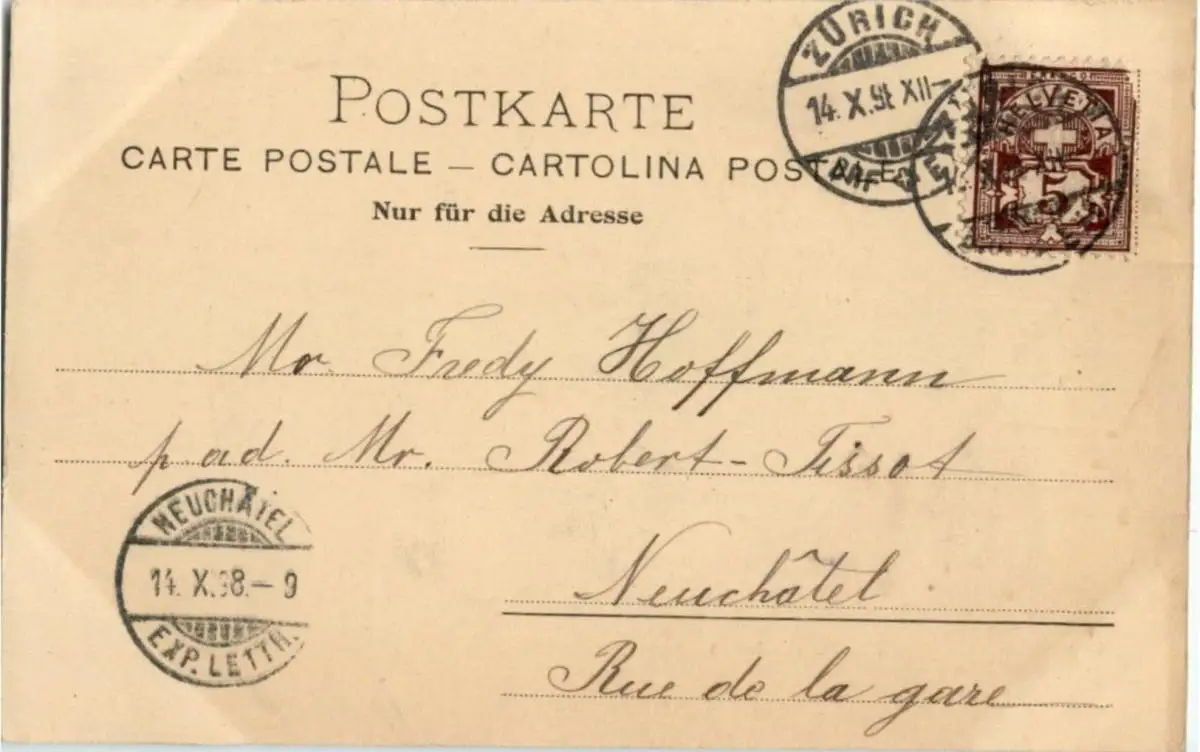 POSTKARTE
CARTE POSTALE — CARTOLINA POSTALE
Nur für die Adresse
ZÜRICH
14. X. 98 XII—
BRF
HELVETIA
5
Mr. Fredy Hoffmann
p ad. Mr. Robert-Tissot
Neuchâtel
Rue de la gare
NEUCHÂTEL
14. X. 98.— 9
EXP. LETTR.